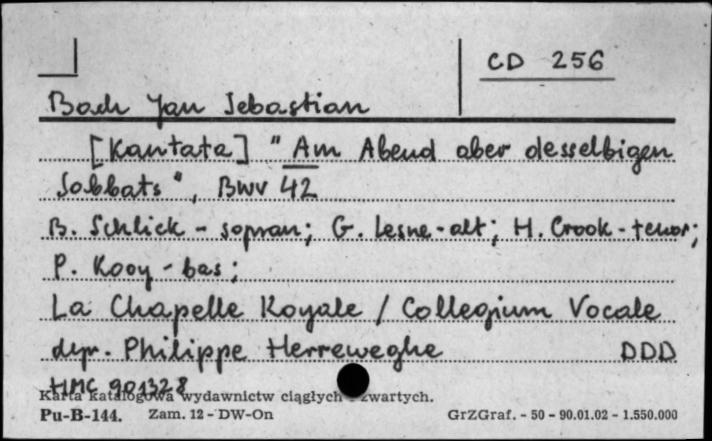 CD 256
Bach Jan Sebastian
[Kantata] "Am Abend aber desselbigen
Sabbats", BWV 42
B. Schlick - sopran; G. Lesne - alt; H. Crook - tenor;
P. Kooy - bas;
La Chapelle Royale / Collegium Vocale
dyr. Philippe Herreweghe DDD
HMC 901328
Karta katalogowa wydawnictw ciągłych zwartych.
Pu-B-144. Zam. 12 - DW-On GrZGraf. - 50 - 90.01.02 - 1.550.000